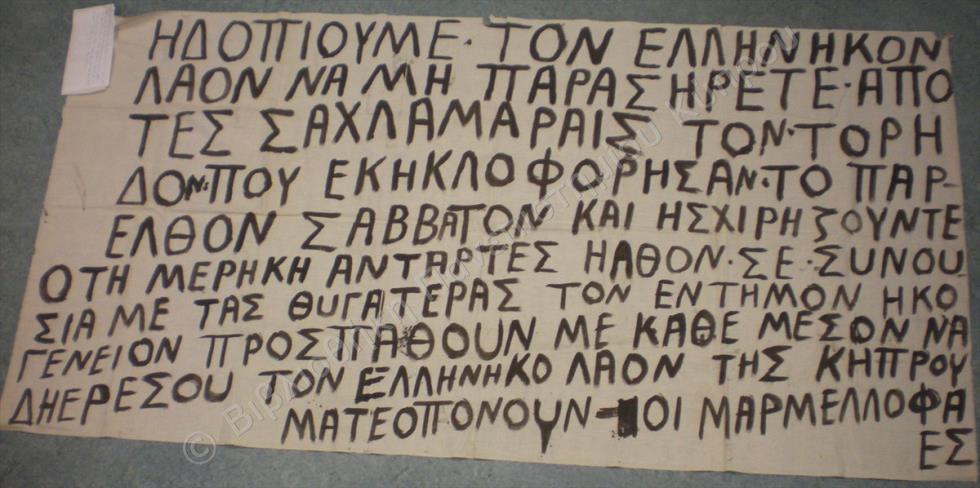 ΗΔΟΠΙΟΥΜΕ· ΤΟΝ ΕΛΛΗΝΗΚΟΝ
ΛΑΟΝ ΝΑ ΜΗ ΠΑΡΑΣΗΡΕΤΕ· ΑΠΟ
ΤΕΣ ΣΑΧΛΑΜΑΡΑΙΣ ΤΟΝ· ΤΟΡΗ
ΔΟΝ· ΠΟΥ ΕΚΗΚΛΟΦΟΡΗΣΑΝ· ΤΟ ΠΑΡ-
ΕΛΘΟΝ ΣΑΒΒΑΤΟΝ ΚΑΙ ΗΣΧΙΡΗΖΟΥΝΤΕ
ΟΤΗ ΜΕΡΗΚΗ ΑΝΤΑΡΤΕΣ ΗΛΘΟΝ· ΣΕ· ΣΥΝΟΥ
ΣΙΑ ΜΕ ΤΑΣ ΘΥΓΑΤΕΡΑΣ ΤΟΝ ΕΝΤΗΜΟΝ ΗΚΟ
ΓΕΝΕΙΟΝ ΠΡΟΣΠΑΘΟΥΝ ΜΕ ΚΑΘΕ ΜΕΣΟΝ ΝΑ
ΔΗΕΡΕΣΟΥ ΤΟΝ ΕΛΛΗΝΗΚΟ ΛΑΟΝ ΤΗΣ ΚΗΠΡΟΥ
ΜΑΤΕΟΠΟΝΟΥΝ - ΟΙ ΜΑΡΜΕΛΛΟΦΑ
ΕΣ
© Βιβλιοθήκη Πανεπιστημίου Κύπρου